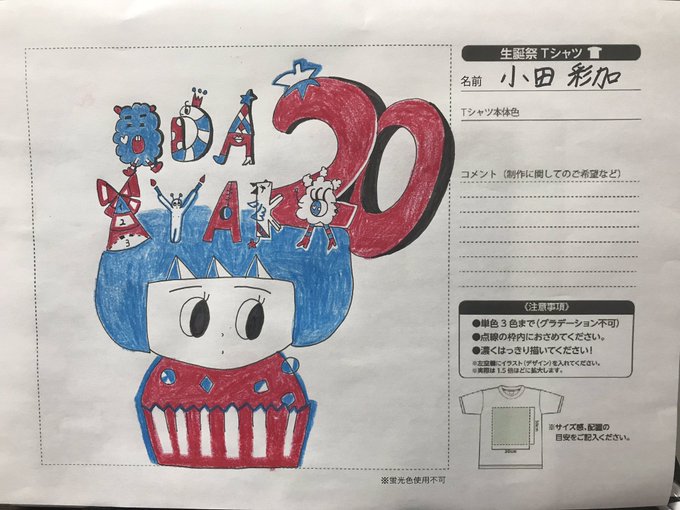 ODA
AYAKA
20
1
2
3
生誕祭Tシャツ
名前 小田 彩加
Tシャツ本体色
コメント（制作に関してのご希望など）
《注意事項》
●単色3色まで（グラデーション不可）
●点線の枠内におさめてください。
●濃くはっきり描いてください！
※左空欄にイラスト（デザイン）を入れてください。
※実際は1.5倍ほどに拡大します。
30cm
※サイズ感、配置の
目安をご記入ください。
※蛍光色使用不可